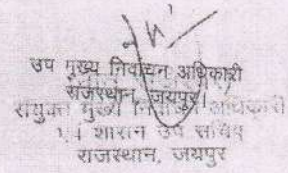 उप मुख्य निर्वाचन अधिकारी
राजस्थान, जयपुर।
संयुक्त मुख्य निर्वाचन अधिकारी
एवं शासन उप सचिव
राजस्थान, जयपुर